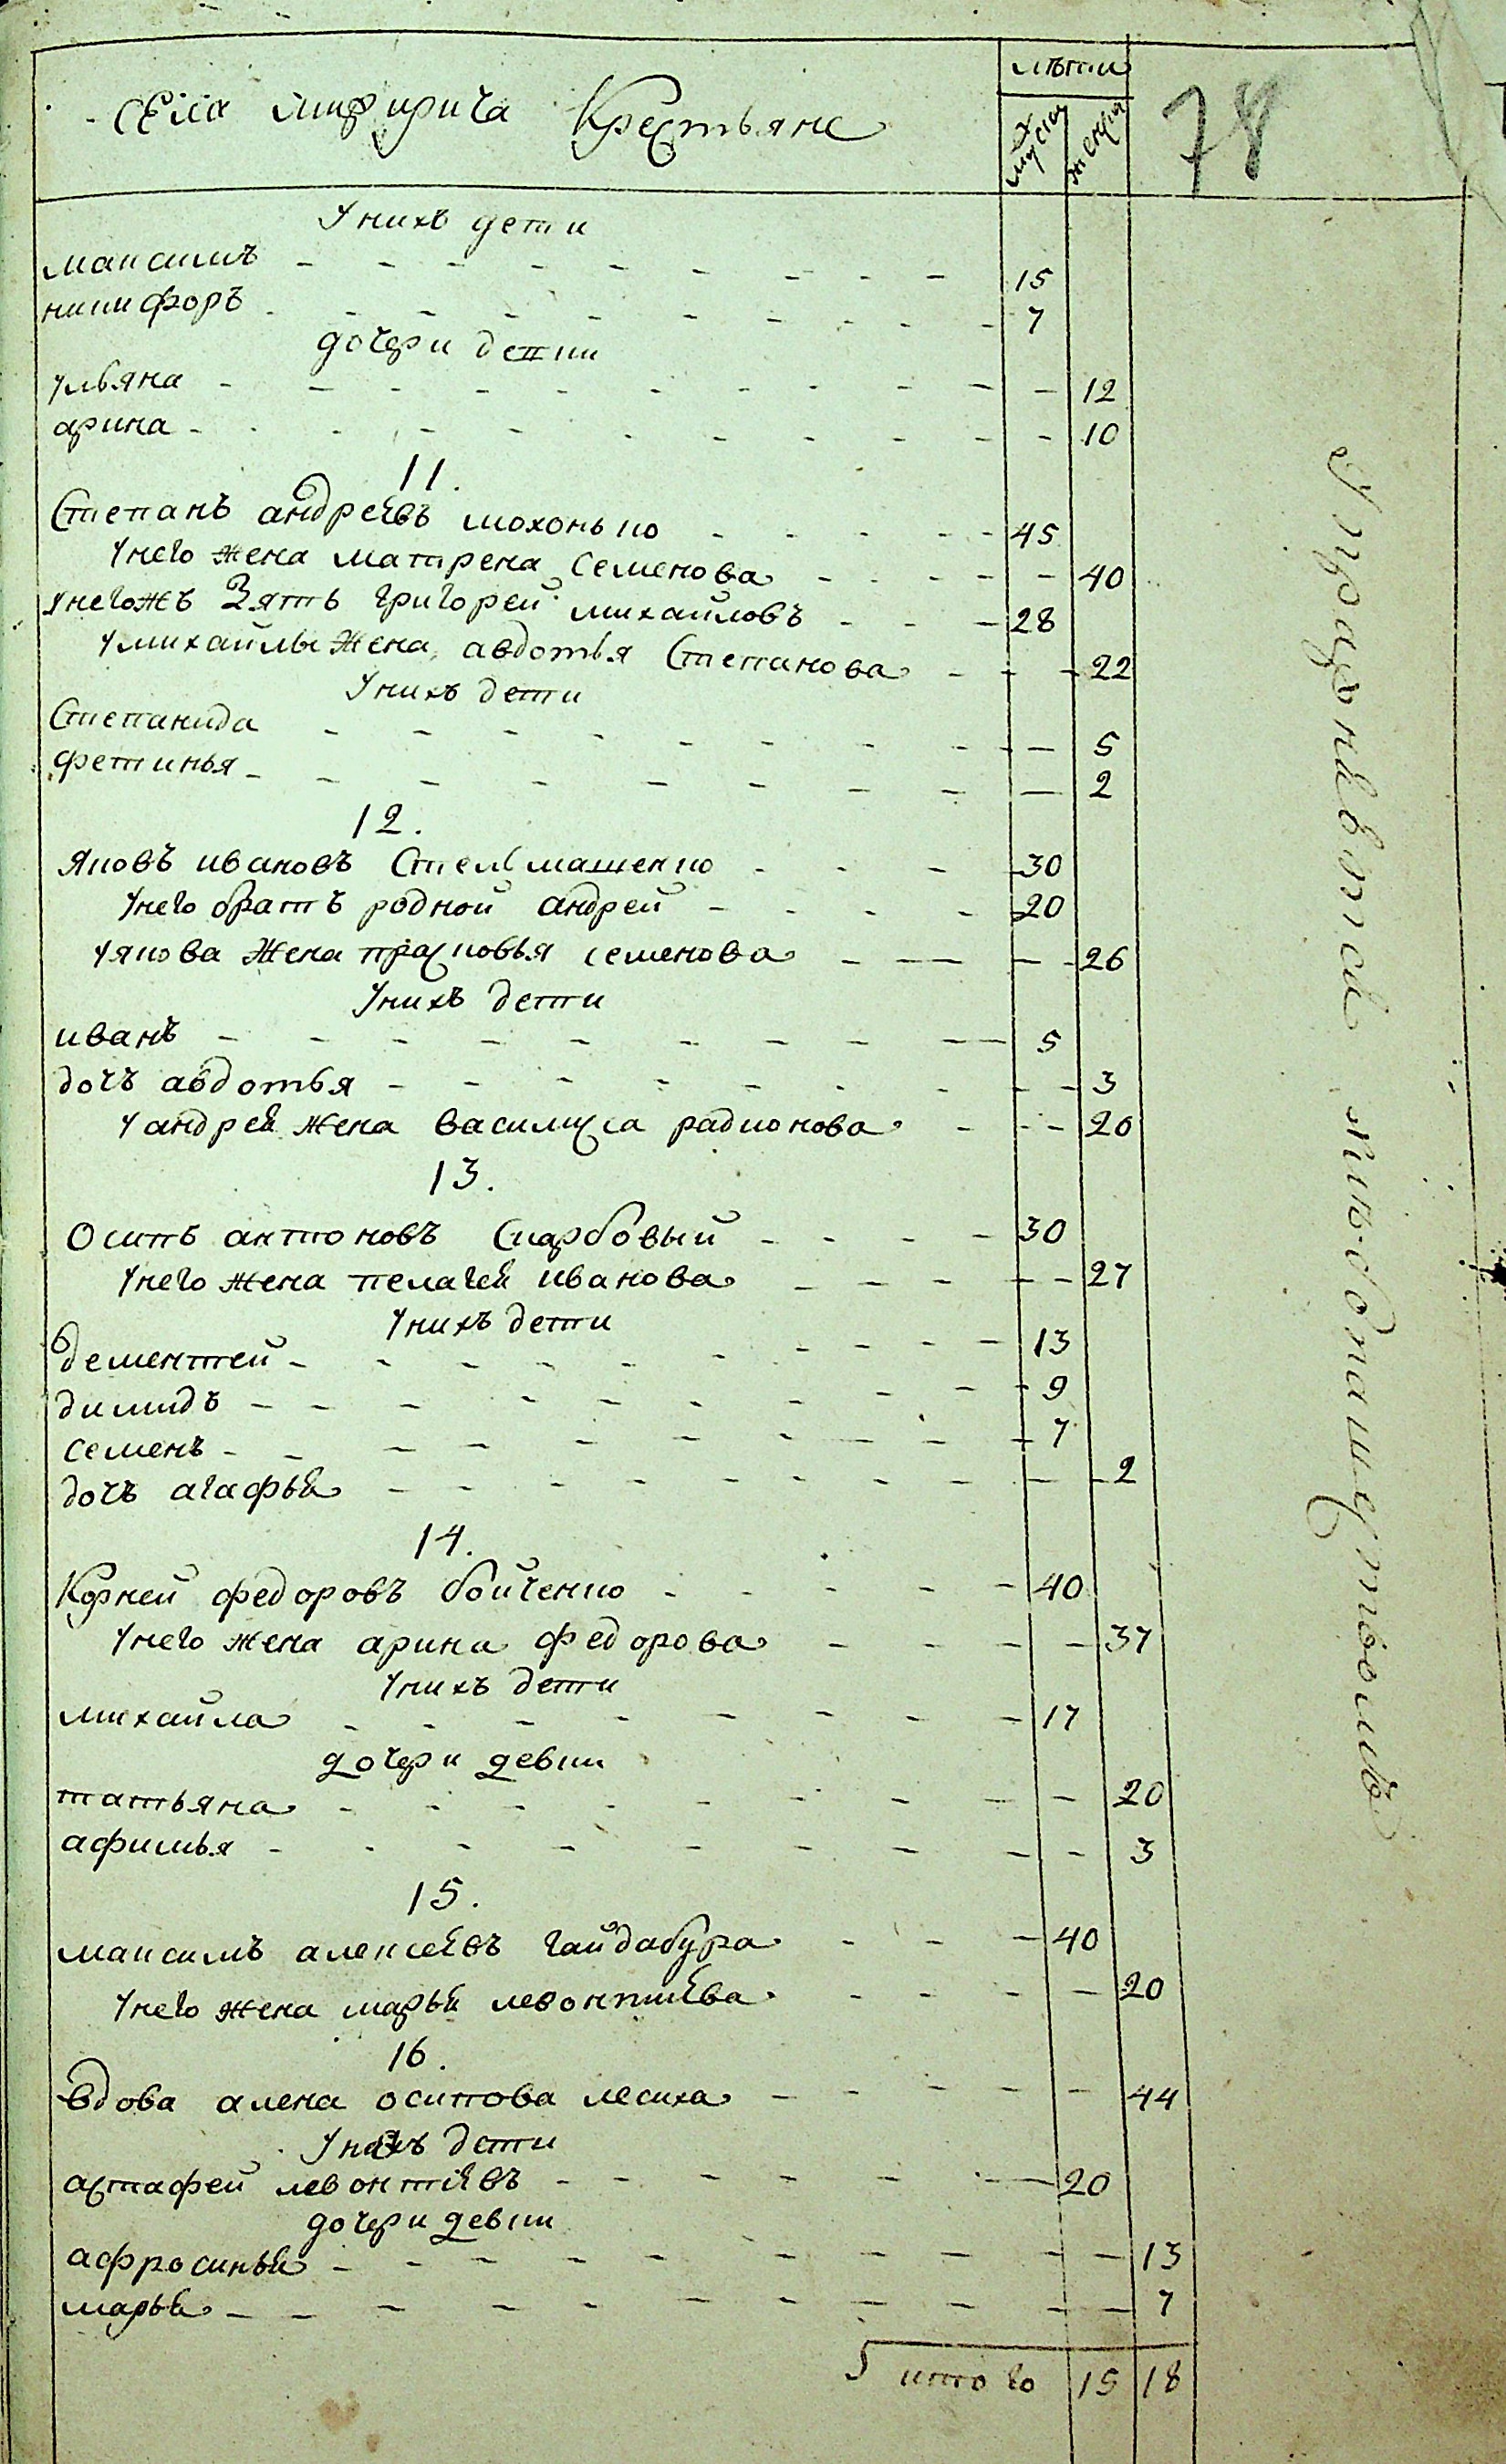 села мифирича Крестьяне
лѣта
мужска
женска
78
Унихъ дети
максимъ 15
никифоръ 7
дочери девки
ульяна 12
арина 10
11.
Степанъ андреевъ мохонько 45
Унего жена матрена семенова 40
Унегожъ Зять григорей михайловъ 28
Умихайлы жена авдотья Степанова 22
Унихъ дети
Степанида 5
фетинья 2
12.
яковъ ивановъ Стельмашенко 30
Унего братъ родной андрей 20
Уякова жена прасковья семенова 26
Унихъ дети
иванъ 5
дочъ авдотья 3
Уандрея жена василиса радионова 20
13.
Осипъ антоновъ Скарбовый 30
Унего жена пелагея иванова 27
Унихъ дети
дементей 13
димидъ 9
семенъ 7
дочъ агафья 2
14.
Корней федоровъ бойченко 40
Унего жена арина федорова 37
Унихъ дети
михайла 17
дочери девки
татьяна 20
афимья 3
15.
максимъ алексеевъ гайдабура 40
Унего жена марья левонтиева 20
16.
вдова алена осипова лесиха 44
Унихъ дети
астафей левонтиевъ 20
дочери девки
афросинья 13
марья 7
итого 15 18